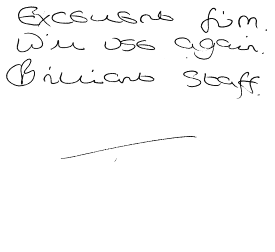 Excellent firm.
Will use again.
Brilliant staff.